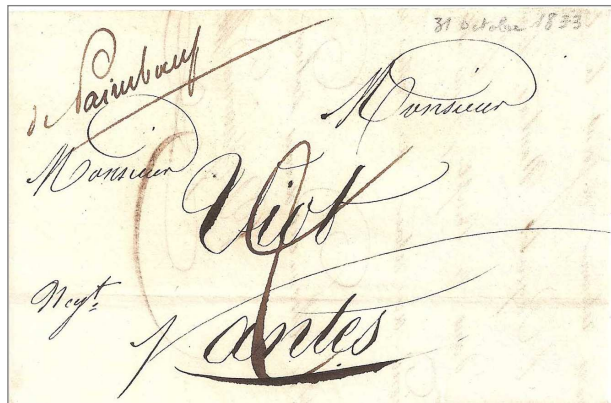 31 octobre 1833
de Paimboeuf
Monsieur
Monsieur
Viot
Negt.
Nantes